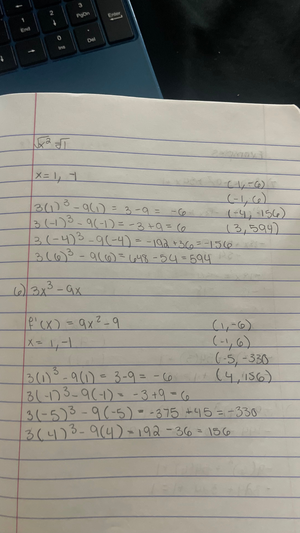 1
End
2
↓
3
PgDn
Enter
→
0
Ins
.
Del
√x² = √1
x = 1, -1
3(1)³ - 9(1) = 3 - 9 = -6
3(-1)³ - 9(-1) = -3 + 9 = 6
3(-4)³ - 9(-4) = -192 + 36 = -156
3(6)³ - 9(6) = 648 - 54 = 594
(1, -6)
(-1, 6)
(-4, -156)
(3, 594)
6) 3x³ - 9x
f'(x) = 9x² - 9
x = 1, -1
3(1)³ - 9(1) = 3 - 9 = -6
3(-1)³ - 9(-1) = -3 + 9 = 6
3(-5)³ - 9(-5) = -375 + 45 = -330
3(4)³ - 9(4) = 192 - 36 = 156
(1, -6)
(-1, 6)
(-5, -330
(4, 156)